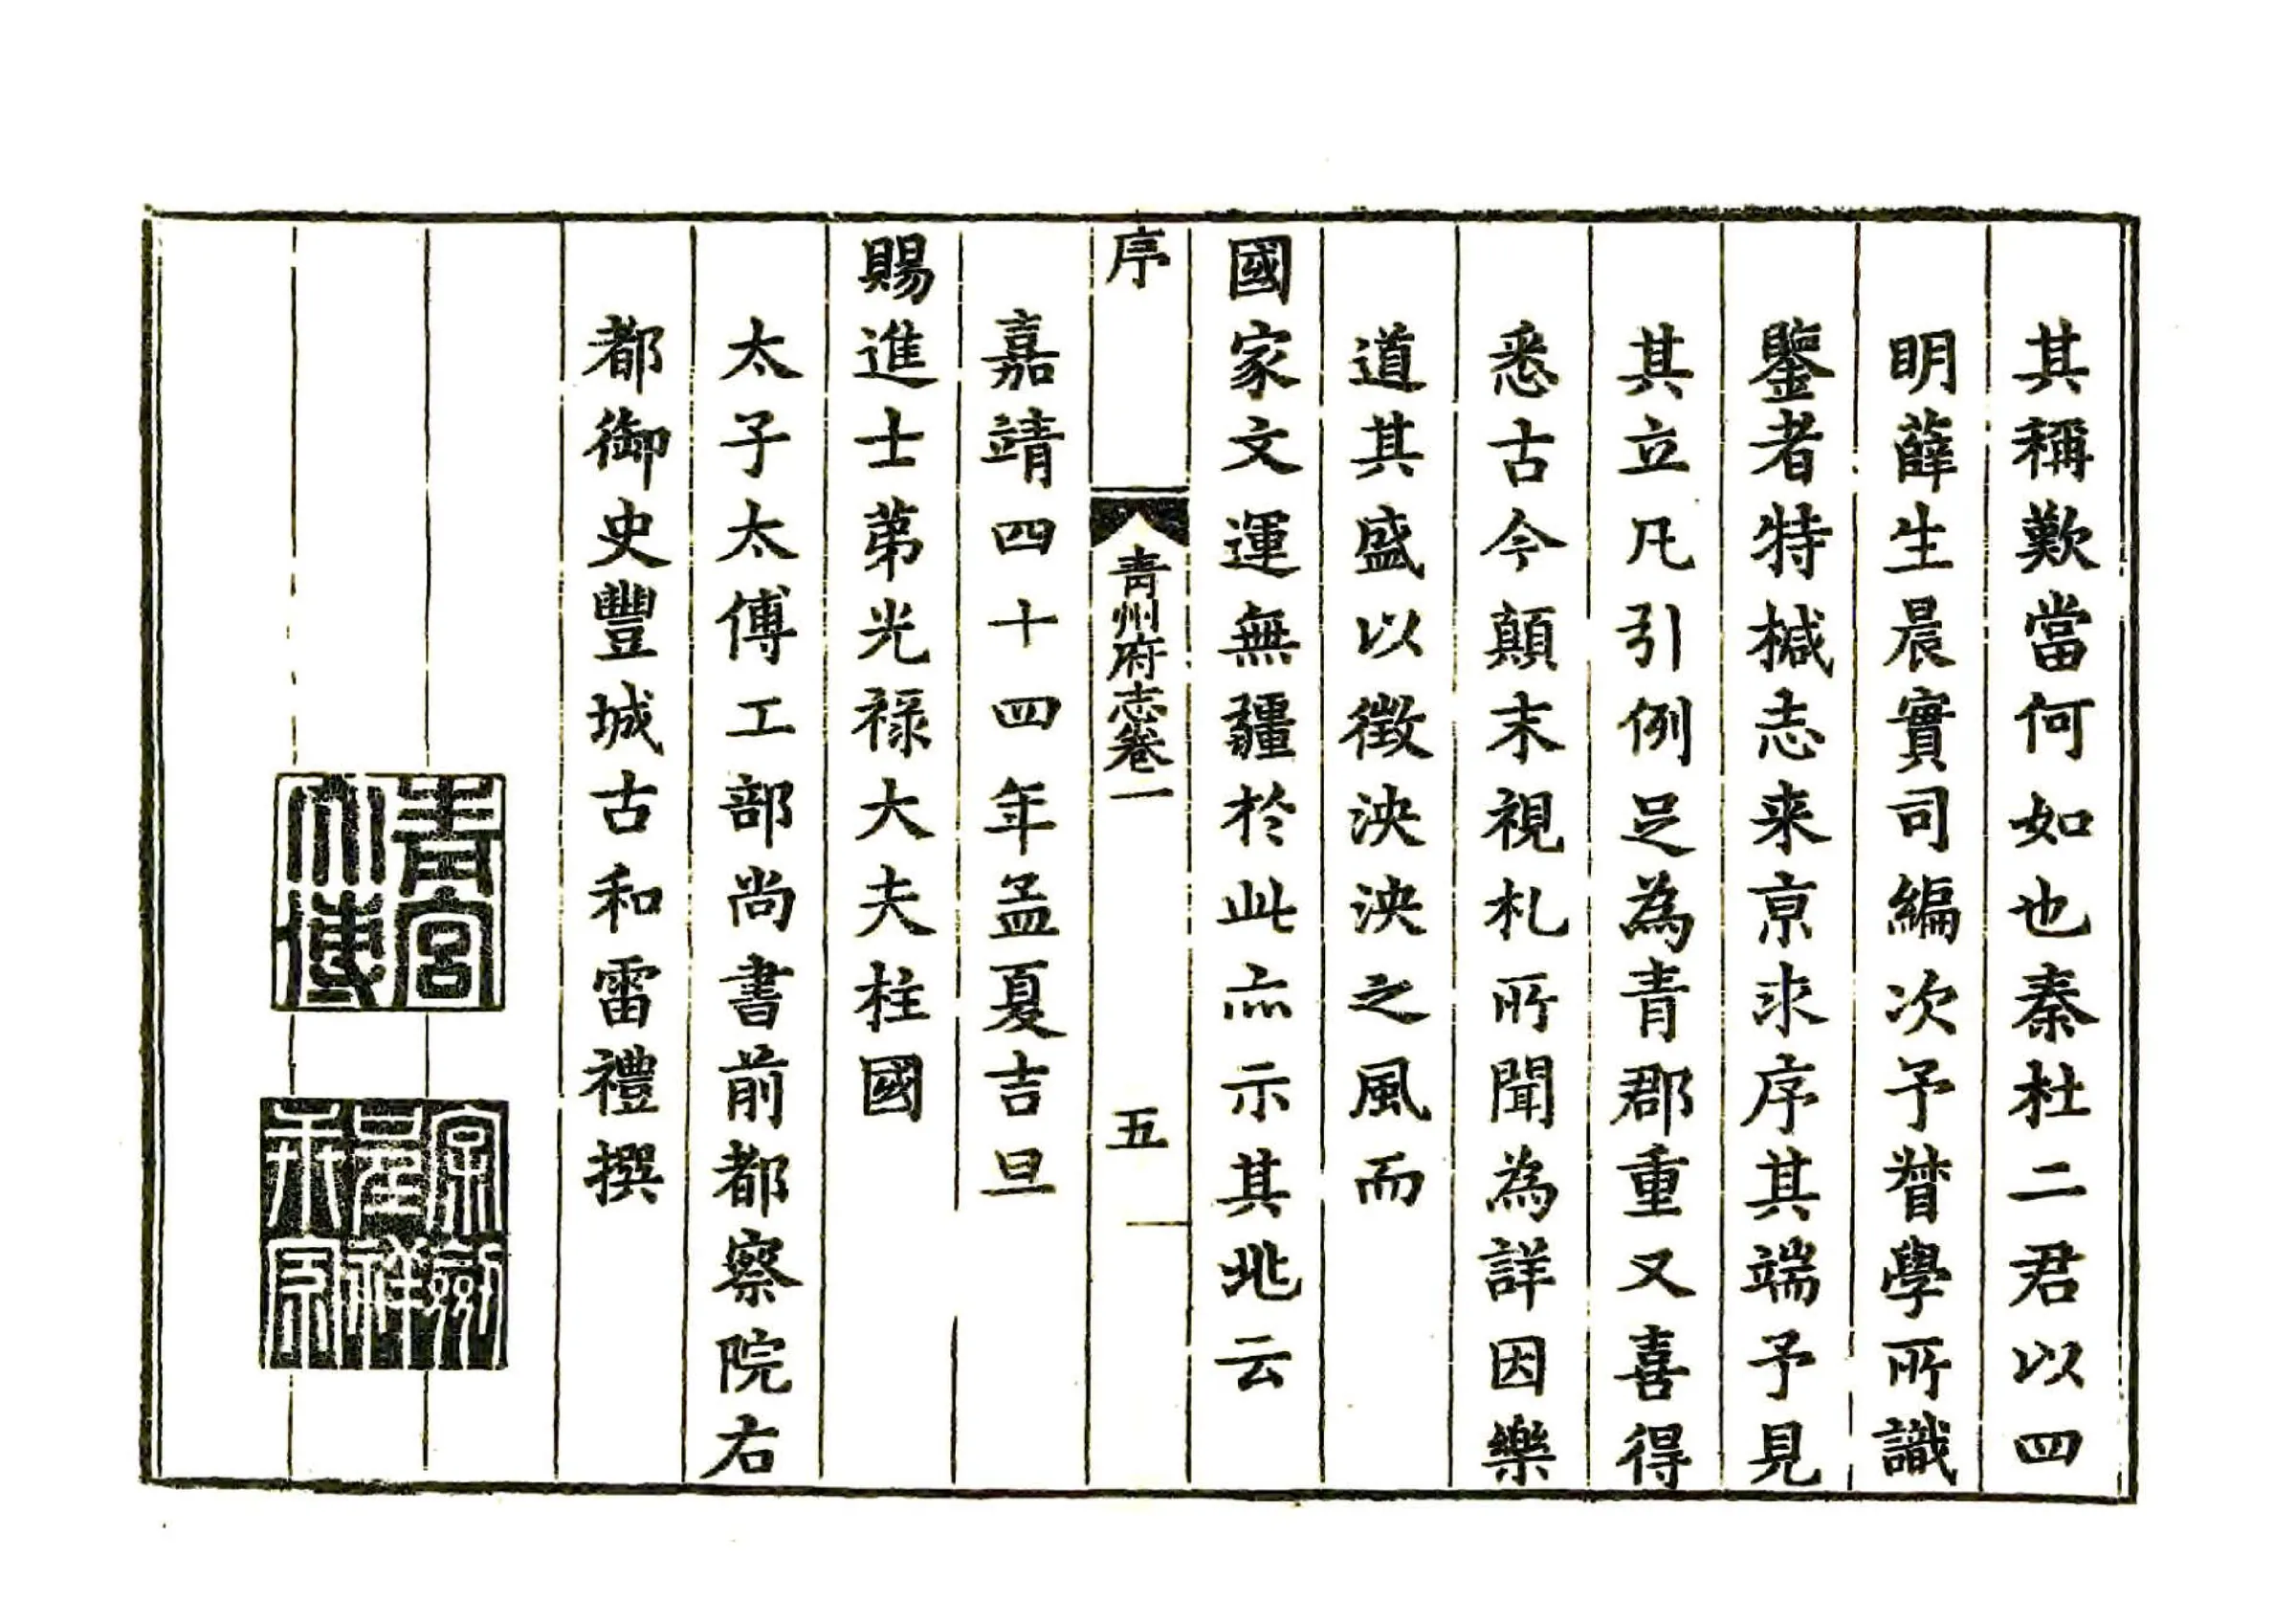 其稱歎當何如也秦杜二君以四
明薛生晨實司編次予督學所識
鑒者特椷志来京求序其端予見
其立凡引例足為青郡重又喜得
悉古今顛末視札所聞為詳因樂
道其盛以徵泱泱之風而
國家文運無疆於此亦示其兆云
序
青州府志卷一
五
嘉靖四十四年孟夏吉旦
賜進士苐光禄大夫柱國
太子太傅工部尚書前都察院右
都御史豐城古和雷禮撰
青宮
太傅